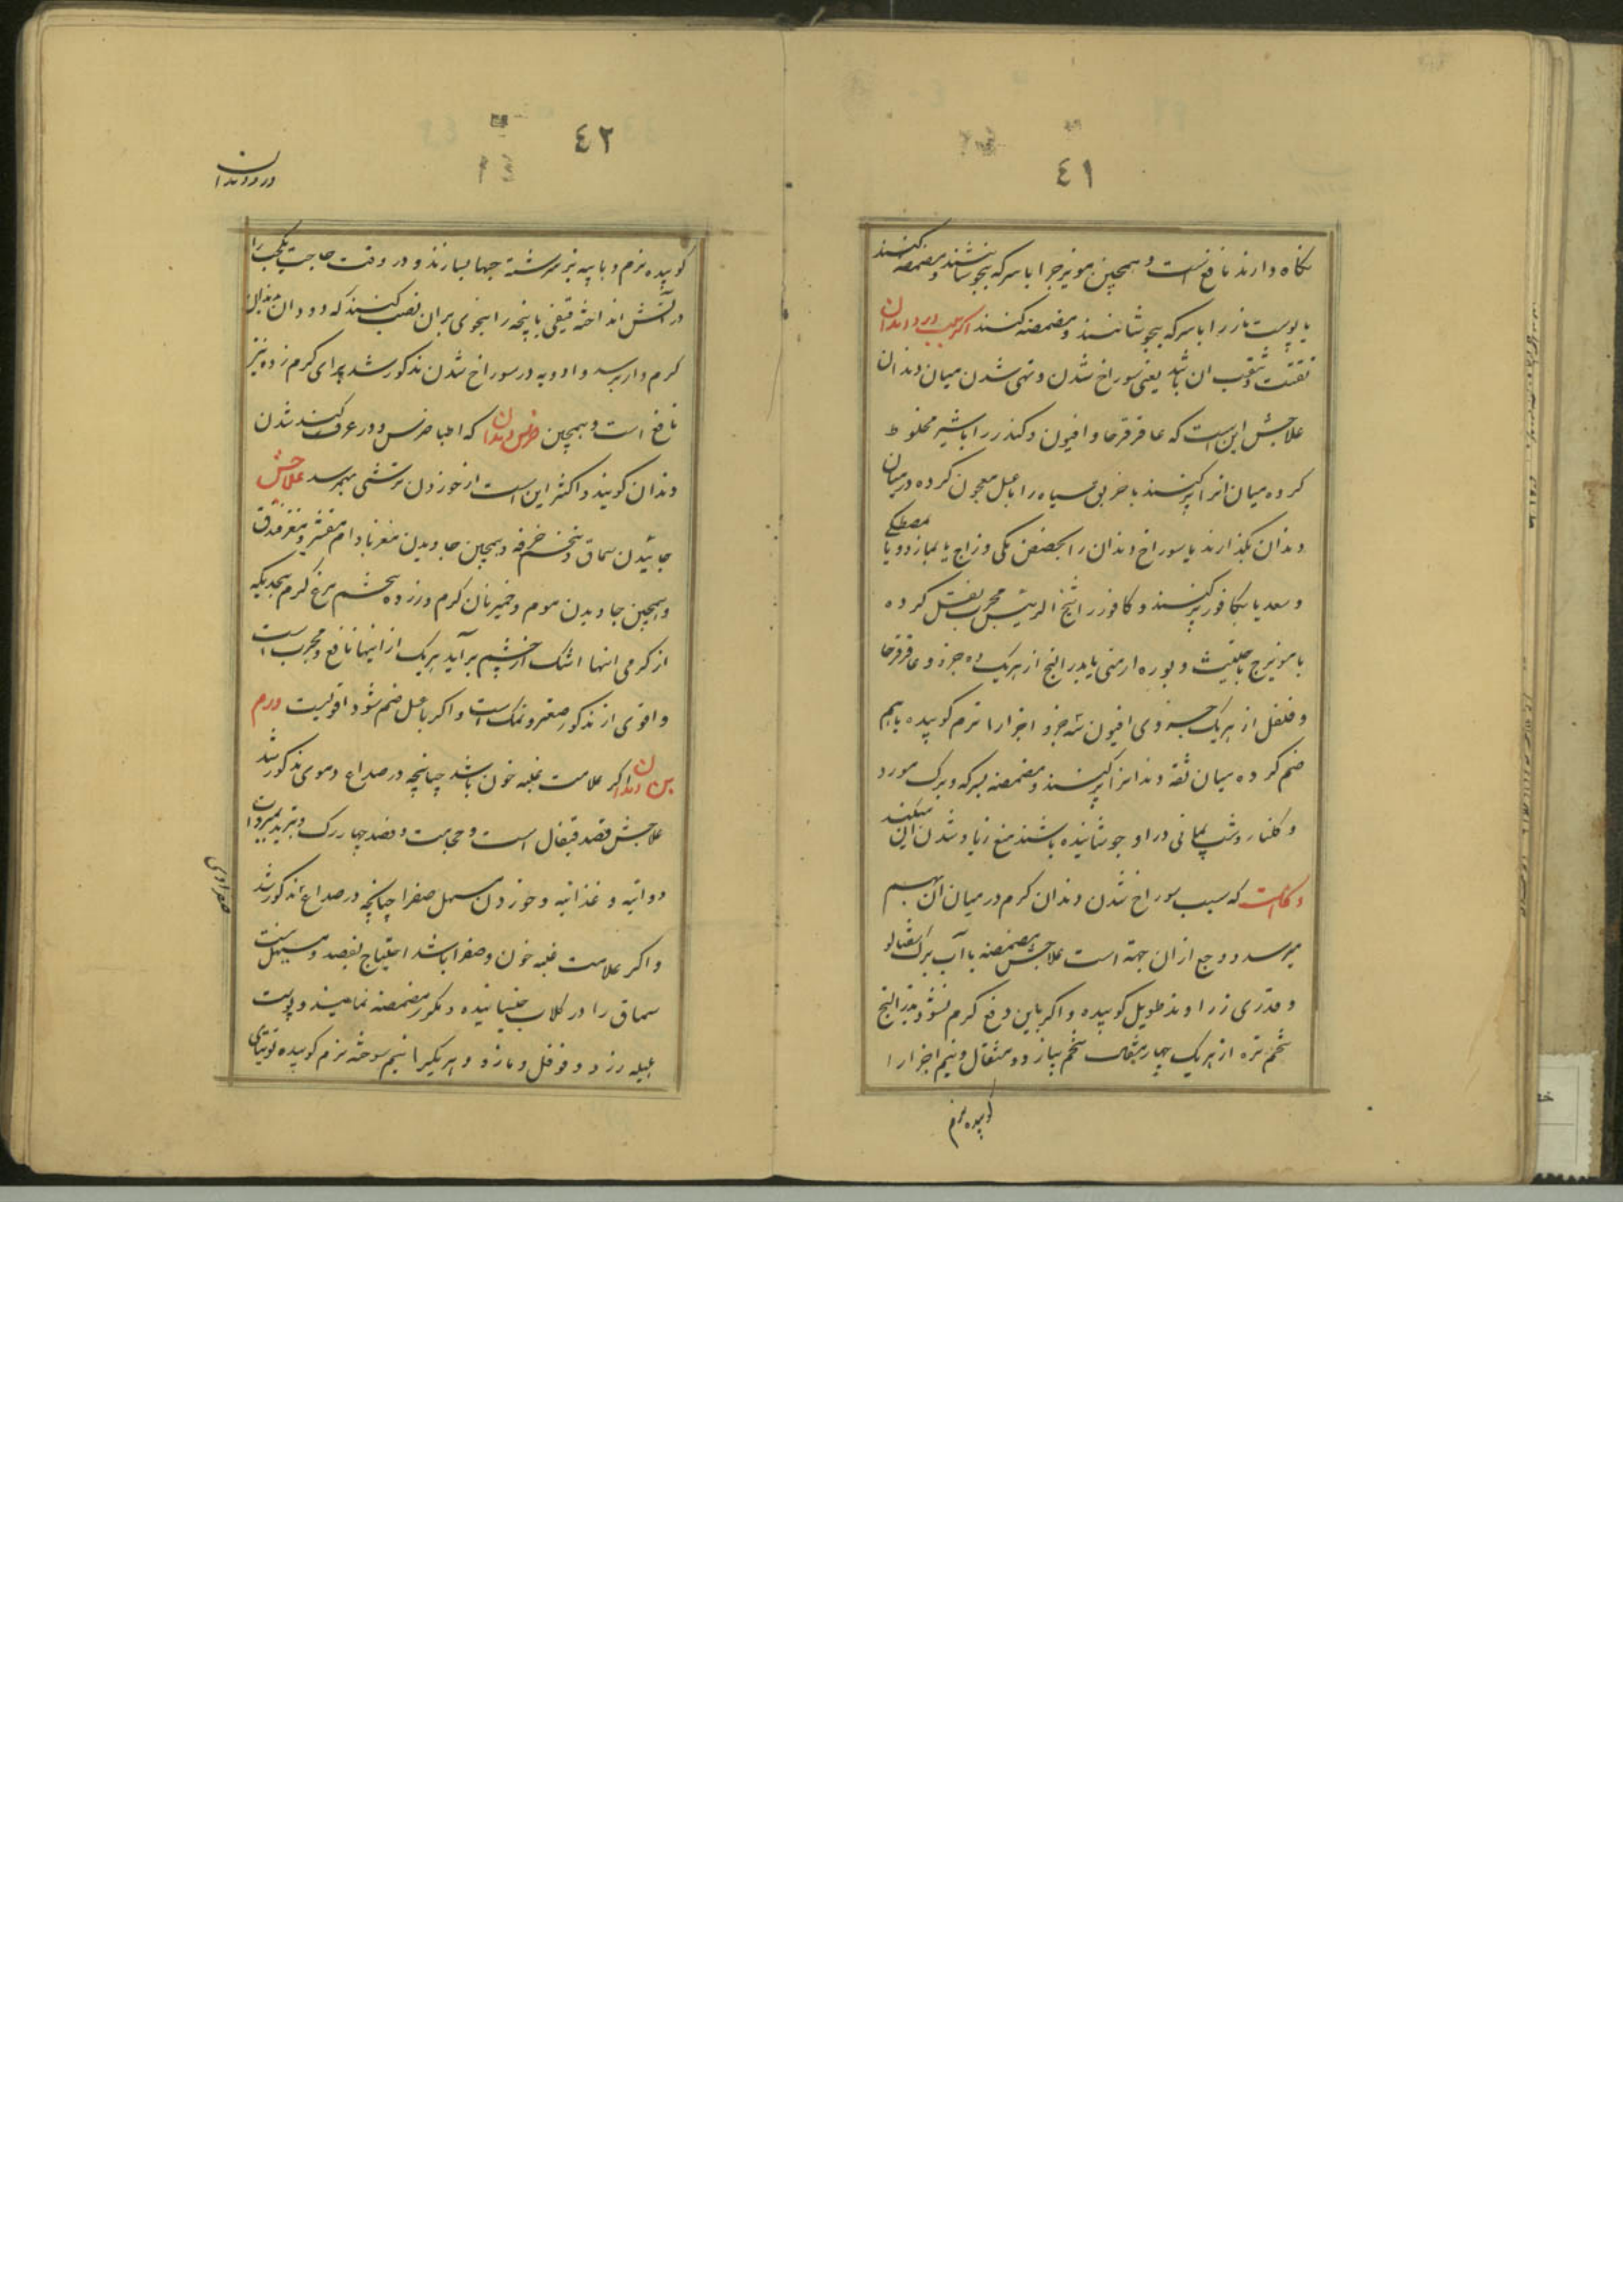 ٤١
نکاه دارند نافع است و همچنین مویزج را با سرکه بجوشانند و مضمضه کنند
یا پوست مازر را با سرکه بجوشانند و مضمضه کنند اکر سبب درد دندان
تفتت و تثقب ان باشد یعنی سوراخ شدن و تهی شدن میان دندان
علاجش این است که عاقرقرحا و افیون و کندر را با شیر مخلوط
کرده میان انرا پر کنند یا خربق سیاه را با عسل معجون کرده در میان
دندان بکذارند یا سوراخ دندان را بحضض مکی و زاج یا بمازو و یا مصطکی
و سعد یا بکافور پر کنند و کافور را شیخ الرئیس مجرب نقل کرده
یا مویزج یا حلتیت و بوره ارمنی یا بذر البنج از هریک ده جزو و عاقرقرحا
و فلفل از هریک جزوی افیون سه جزو اجزا را نرم کوبیده باهم
ضم کرده میان ثقبه دندانرا پر کنند و مضمضه بسرکه و برک مورد
و کلنار و شب یمانی در او جوشانیده باشند منع زیاد شدن این میکند
و کاه است که سبب سوراخ شدن دندان کرم در میان ان بهم
میرسد و وجع ازان جهة است علاجش مضمضه با آب برک شفتالو
و قدری زراوند طویل کوبیده و اکر باین دفع کرم نشود بذر البنج
تخم تره از هریک چهار مثقال تخم پیاز دو مثقال و نیم اجزا را
کوبیده نرم
٤٢
درد دندان
کوبیده نرم و با پیه بز سرشته حبها بسازند و در وقت حاجت یکحب را
در آتش انداخته قیفی یا پنجه را بنحوی بران نصب کنند که دود ان بدندان
کرم دار برسد و ادویه در سوراخ شدن مذکور شد برای کرم زده نیز
نافع است و همچنین ضرس دندان که اطبا ضرس و در عرف کند شدن
دندان کویند و اکثر این است از خوردن ترشی بهمرسد علاجش
جائیدن سماق و تخم خرفه و همچنین جاویدن مغز بادام مقشر و مغز فندق
و همچنین جاویدن موم و خمیر نان کرم و زرده تخم مرغ کرم بحدیکه
از کرمی اینها اشک از چشم برآید هریک از اینها نافع و مجرب است
و اقوی از مذکور صعتر و نمک است و اکر با عسل ضم شود اقویست ورم
بن دندان اکر علامت غلبه خون باشد چنانچه در صداع دموی مذکور شد
علاجش فصد قیفال است و حجامت و فصد چهار رک و تبرید بمبردات
دوائیه و غذائیه و خوردن مسهل صفرا چنانچه در صداع مذکور شد
صفراوی
و اکر علامت غلبه خون و صفرا باشد احتیاج بفصد و مسهل نیست
سماق را در کلاب خیسانیده و مکرر مضمضه نمایند و پوست
هلیله زرد و فوفل و مازو و هریکیرا نیم سوخته نرم کوبیده توتیای